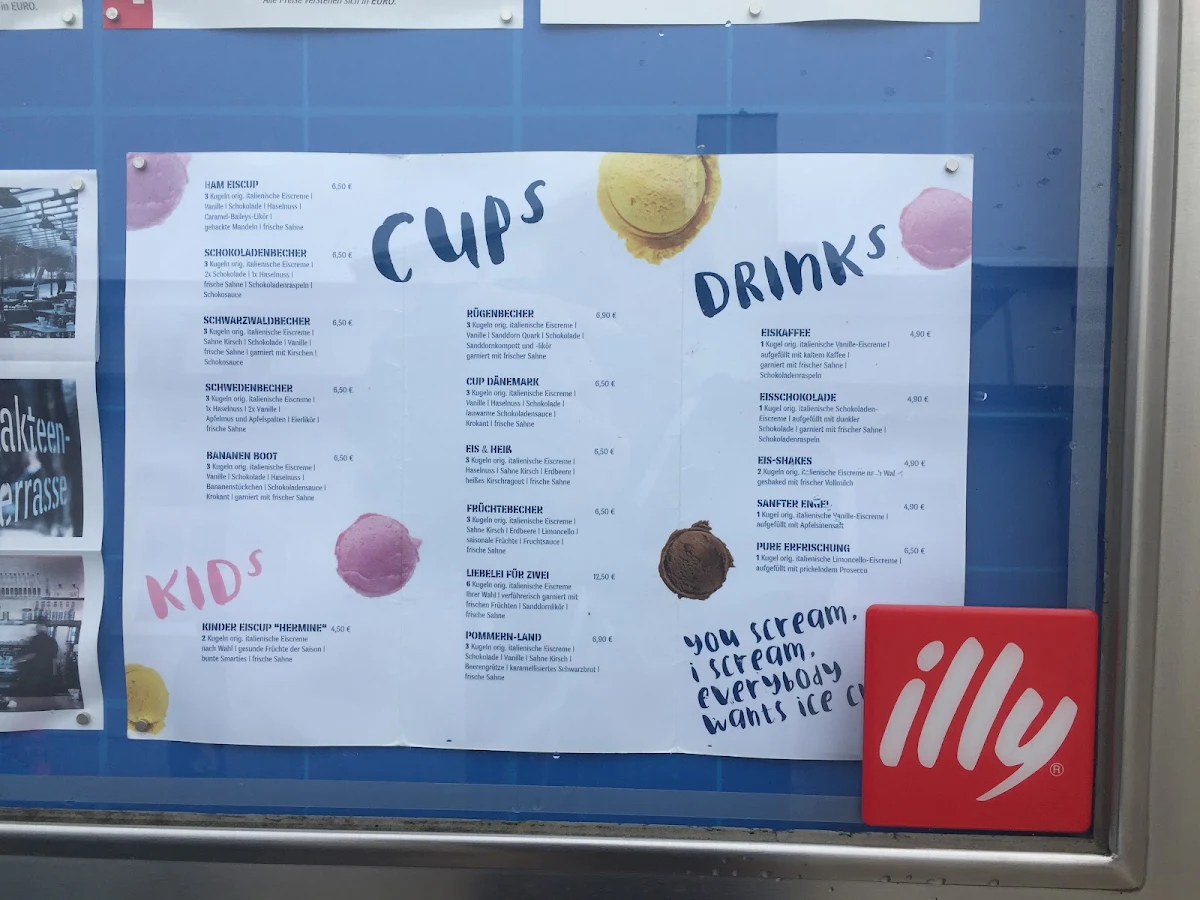 in EURO.
Alle Preise verstehen sich in EURO.
CUPS
HAM EISCUP 6,50 €
3 Kugeln orig. italienische Eiscreme |
Vanille | Schokolade | Haselnuss |
Caramel-Baileys-Likör |
gehackte Mandeln | frische Sahne
SCHOKOLADENBECHER 6,50 €
3 Kugeln orig. italienische Eiscreme |
2x Schokolade | 1x Haselnuss |
frische Sahne | Schokoladenraspeln |
Schokosauce
SCHWARZWALDBECHER 6,50 €
3 Kugeln orig. italienische Eiscreme |
Sahne Kirsch | Schokolade | Vanille |
frische Sahne | garniert mit Kirschen |
Schokosauce
SCHWEDENBECHER 6,50 €
3 Kugeln orig. italienische Eiscreme |
1x Haselnuss | 2x Vanille |
Apfelmus und Apfelspalten | Eierlikör |
frische Sahne
BANANEN BOOT 6,50 €
3 Kugeln orig. italienische Eiscreme |
Vanille | Schokolade | Haselnuss |
Bananenstückchen | Schokoladensauce |
Krokant | garniert mit frischer Sahne
KIDS
KINDER EISCUP "HERMINE" 4,50 €
2 Kugeln orig. italienische Eiscreme
nach Wahl | gesunde Früchte der Saison |
bunte Smarties | frische Sahne
RÜGENBECHER 6,90 €
3 Kugeln orig. italienische Eiscreme |
Vanille | Sanddorn Quark | Schokolade |
Sanddornkompott und -likör
garniert mit frischer Sahne
CUP DÄNEMARK 6,50 €
3 Kugeln orig. italienische Eiscreme |
Vanille | Haselnuss | Schokolade |
lauwarme Schokoladensauce |
Krokant | frische Sahne
EIS & HEIß 6,50 €
3 Kugeln orig. italienische Eiscreme |
Haselnuss | Sahne Kirsch | Erdbeere |
heißes Kirschragout | frische Sahne
FRÜCHTEBECHER 6,50 €
3 Kugeln orig. italienische Eiscreme |
Sahne Kirsch | Erdbeere | Limoncello |
saisonale Früchte | Fruchtsauce |
frische Sahne
LIEBELEI FÜR ZWEI 12,50 €
6 Kugeln orig. italienische Eiscreme
Ihrer Wahl | verführerisch garniert mit
frischen Früchten | Sanddornlikör |
frische Sahne
POMMERN-LAND 6,90 €
3 Kugeln orig. italienische Eiscreme |
Schokolade | Vanille | Sahne Kirsch |
Beerengrütze | karamellisiertes Schwarzbrot |
frische Sahne
DRINKS
EISKAFFEE 4,90 €
1 Kugel orig. italienische Vanille-Eiscreme |
aufgefüllt mit kaltem Kaffee |
garniert mit frischer Sahne |
Schokoladenraspeln
EISSCHOKOLADE 4,90 €
1 Kugel orig. italienische Schokoladen-
Eiscreme | aufgefüllt mit dunkler
Schokolade | garniert mit frischer Sahne |
Schokoladenraspeln
EIS-SHAKES 4,90 €
2 Kugeln orig. italienische Eiscreme
geshaked mit frischer Vollmilch
SANFTER ENGEL 4,90 €
1 Kugel orig. italienische Vanille-Eiscreme |
aufgefüllt mit Apfelsinensaft
PURE ERFRISCHUNG 6,50 €
1 Kugel orig. italienische Limoncello-Eiscreme |
aufgefüllt mit prickelndem Prosecco
you scream,
i scream,
everybody
wants ice
illy ®
akteen-
errasse